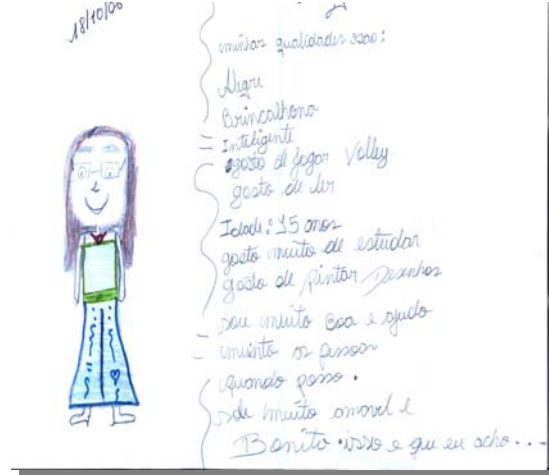 18/10/06
minhas qualidades sao:
Alegre
Brincalhona
Inteligente
gosto de jogar Volley
gosto de ler
Idade: 15 anos
gosto muito de estudar
gosto de pintar Desenhos
sou muito Boa e ajudo
muinto as pessoas
quando posso.
sou muito amavel e
Bonita isso e que eu acho...